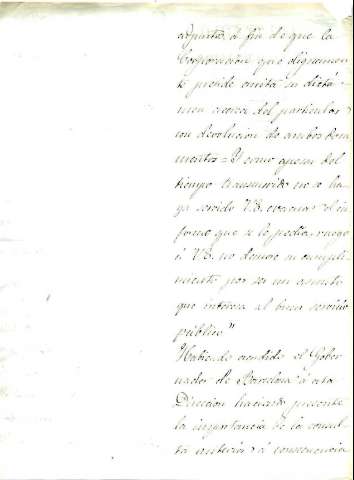 adjunta á fin de que la
Corporacion que dignamen-
te preside emita su dictá-
men acerca del particular
con devolucion de ambos docu
mentos = Y como quiera del
tiempo transcurrido no se ha-
ya servido V.E. evacuar el in-
forme que se le pedia, ruego
á V.E. no demore su cumpli-
miento por ser un asunto
que interesa al buen servicio
público"
Habiendo acudido el Gober
nador de Barcelona á esta
Direccion haciendo presente
la importancia de la consul
ta anterior á consecuencia